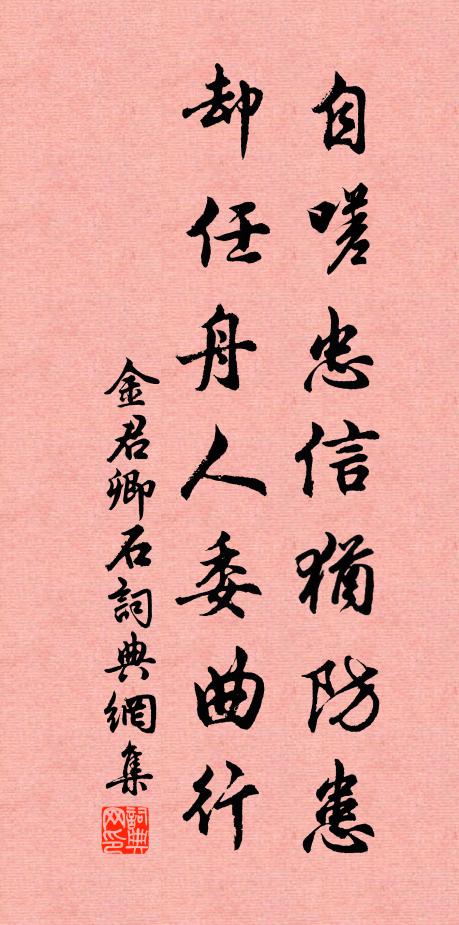 自嗟忠信猶防患
却任舟人委曲行
金君卿石詞典網集
詞典网印